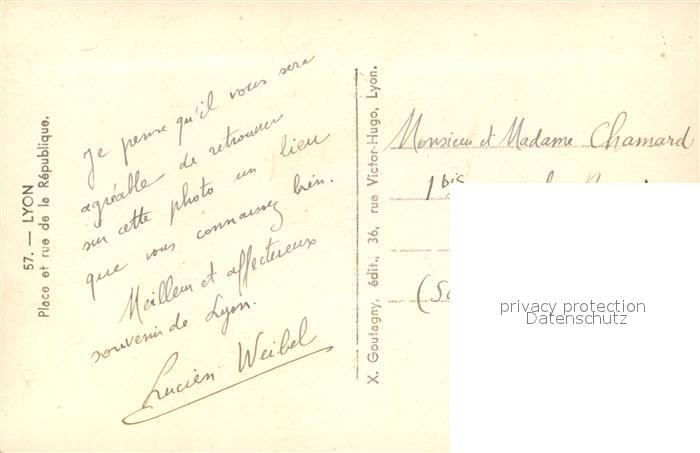 57. — LYON
Place et rue de la République.
Je pense qu'il vous sera
agréable de retrouver
sur cette photo un lieu
que vous connaissez bien.
Meilleur et affectueux
souvenir de Lyon.
Lucien Weibel
X. Goutagny, édit., 36, rue Victor-Hugo, Lyon.
Monsieur et Madame Chamard
1 bis
privacy protection
Datenschutz